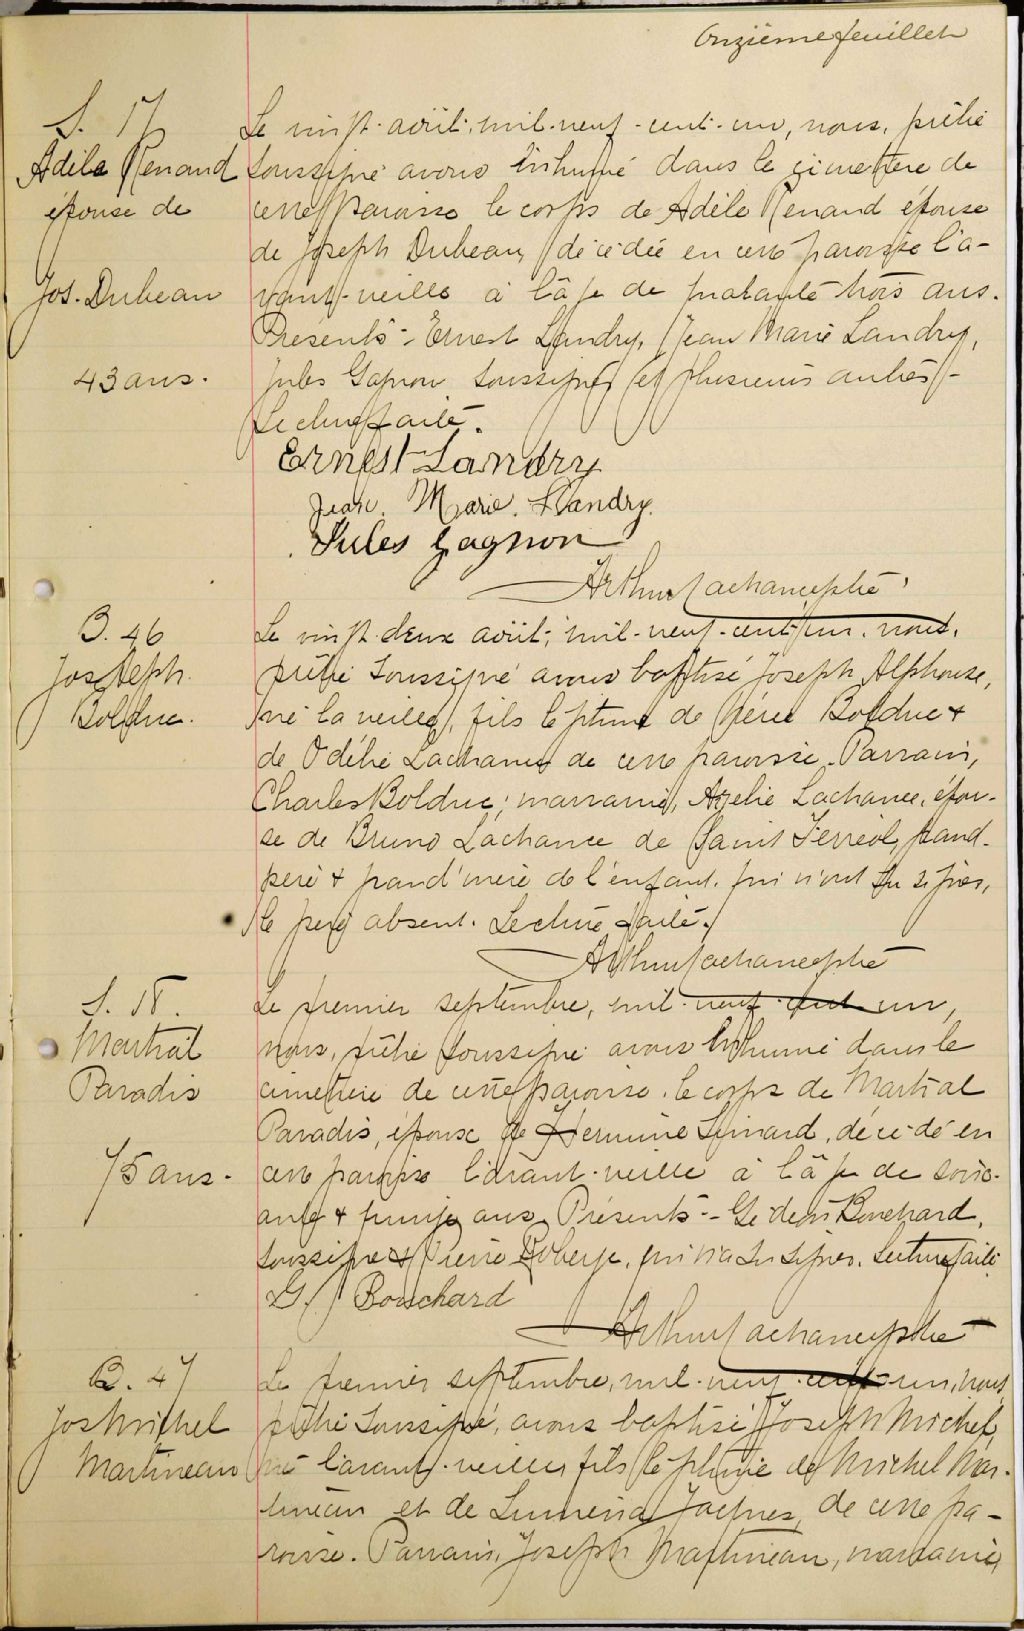 Onzième feuillet
S. 17
Adèle Renaud
épouse de
Jos. Dubeau
43 ans.
Le vingt-août, mil-neuf-cent-un, nous, prêtre
soussigné avons inhumé dans le cimetière de
cette paroisse le corps de Adèle Renaud épouse
de Joseph Dubeau, décédée en cette paroisse l'a-
vant-veille à l'âge de quarante trois ans.
Présents - Ernest Landry, Jean Marie Landry,
Jules Gagnon soussignés et plusieurs autres -
Lecture faite.
Ernest Landry
Jean. Marie. Landry.
Jules Gagnon
Arthur Lachance ptre
B. 46
Jos Alph.
Bolduc.
Le vingt-deux août, mil-neuf-cent-un, nous,
prêtre soussigné avons baptisé Joseph Alphonse,
né la veille, fils légitime de Bolduc &
de Odélie Lachance de cette paroisse. Parrain,
Charles Bolduc; marraine, Azelie Lachance, épou-
se de Bruno Lachance de Saint Ferréol, grand-
père & grand'mère de l'enfant, qui n'ont su signer,
le père absent. Lecture faite.
Arthur Lachance ptre
S. 18.
Martial
Paradis
75 ans.
Le premier septembre, mil-neuf-cent un,
nous, prêtre soussigné avons inhumé dans le
cimetière de cette paroisse le corps de Martial
Paradis, époux de Hermine Simard, décédé en
cette paroisse l'avant-veille à l'âge de soix-
ante & quinze ans. Présents - Gédéon Bouchard,
soussigné & Pierre Roberge, qui n'a su signer. Lecture faite
G. Bouchard
Arthur Lachance ptre
B. 47
Jos Michel
Martineau
Le premier septembre, mil-neuf-cent-un, nous,
prêtre soussigné, avons baptisé Joseph Michel,
né l'avant-veille, fils légitime de Michel Mar-
tineau et de Lumena Jacques, de cette pa-
roisse. Parrain, Joseph Martineau, marraine,